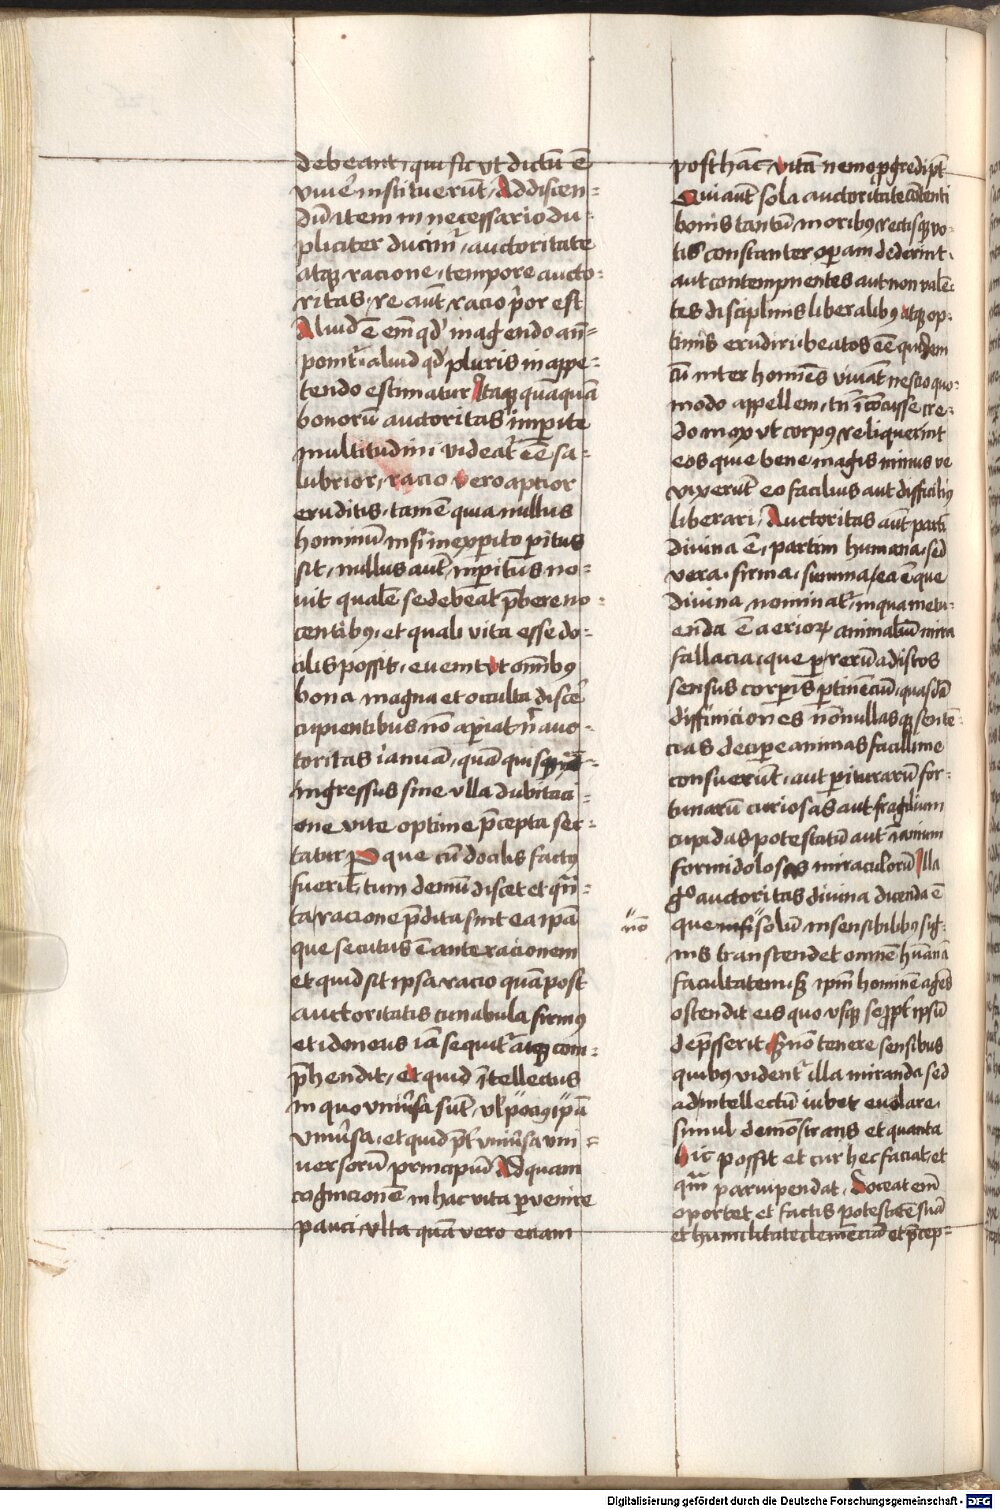 debeant, qui sic vt dictū ē
viuē instituerūt, Ad discen=
dū item in necessario du=
pliciter ducim̄, auctoritate
atqꝫ racione, tempore aucto=
ritas, re aūt racio p̄or est
Aliud ē em̄ qd̄ in agendo an̄=
ponit̄, aliud qd̄ pluris in appe=
tendo estimatur Itaqꝫ quāquā
bonorū auctoritas imp̄ite
multitudini videat̄ eē sa=
lubrior, racio vero aptior
eruditis, tamē quia nullus
hominū nisi inexp̄ito p̄itus
fit, nullus aūt inp̄itus no=
uit qualē se debeat p̄bere no=
centibꝰ, et quali vita esse do=
cilis possit, euenit vt om̄ibꝰ
bona magna et occulta discē
cupientibus nō ap̄iat n̄ auc=
toritas ianuā, quā quisqꝫ
ingressus sine vlla dubitaci=
one vite optime p̄cepta sec=
tatur P que cū docilis factꝰ
fuerit, tum demū discet et qn̄=
ta racione p̄dita sint ea ip̄a
que secutus ē ante racionem
et quid sit ipsa racio quā post
auctoritatis cunabula firmꝰ
et idoneus iā sequit̄ atqꝫ com=
p̄hendit, et quid ītellectus
in quo vniūsa sūt, vl̄ pociꝰ ip̄ā
vniūsa, et quid p̄t̄ vniūsa vni=
uersorū principiū Ad quam
cognicionē in hac vita p̄venire
pauci, vlta quā vero etiam
post hāc vitā nemo ꝓgredi pt̄
Qui aūt sola auctoritate cōtenti
bonis tantū moribꝰ rectisqꝫ vo=
tis constanter op̄am dederint,
aut contempnentes aut non valē=
tes disciplinis liberalibꝰ atqꝫ op=
timis erudiri, beatos eē quidem
cū inter homīes viuāt nescio quo=
modo appellem, tn̄ īcōcusse cre=
do mox vt corpꝰ reliquerint
eos quie bene magis minus ve
vixerūt eo facilius aut difficiliꝰ
liberari, Auctoritas aūt parti
diuina ē, partim humana, sed
vera, firma, summa, ea ē que
diuina nominat̄, in qua metu=
enda ē aerioꝝ animaliū mira
fallacia, que p̄ rerū ad istos
sensus corp̄is p̄tinēciū, quasdā
diffinciones nōnullasqꝫ sentē=
cias decip̄e animas facillime
consuerūt, aut p̄iturarū for=
tunarū curiosas aut fragilium
cupidas potestatū aut īanium
formidolosas miraculorū Illa
ḡ auctoritas diuina dicenda ē
que nisi solū in sensibilibꝰ sig=
"nō
nis transcendet omnē hūanā
facultatem, sꝫ ip̄m hominē agēs
ostendit eis quo vsqꝫ se ꝓpt̄ ipsū
dep̄sserit, Sꝫ nō tenere sensibus
quibꝰ vident̄ illa miranda sed
ad intellectū iubet euolare,
simul demōstrans et quanta
hic possit et cur hec faciat, et
qm̄ paruipendat, Doceat em̄
oportet et factis potestatē suā
et humilitate clemēciā et p̄cep=